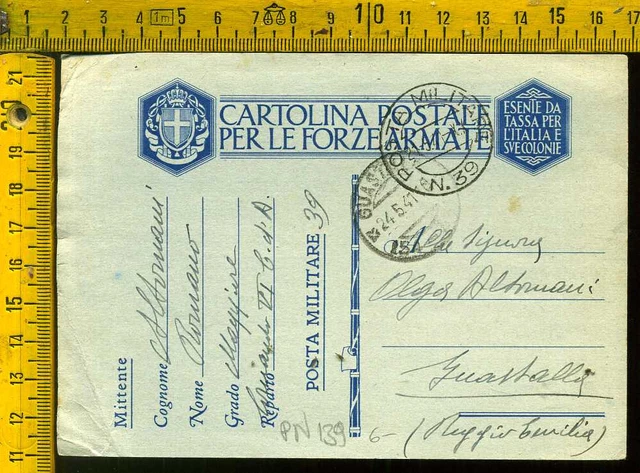 CARTOLINA POSTALE
PER LE FORZE ARMATE
ESENTE DA
TASSA PER
L'ITALIA E
SVE COLONIE
POSTA MILITARE
Nº 62
GUASTALLA
24.5.41
Mittente
Cognome Altomani
Nome Romano
Grado Maggiore
Reparto Comando VI C. d'A.
POSTA MILITARE 39
Alla Signora
Olga Altomani
Guastalla
(Reggio Emilia)
PM 139
6-
1 2 3 4 1m 5 6 7 8 9 10 11 12 13 14 15 16 17
21
20
19
18
17
16
15
14
13
12
11